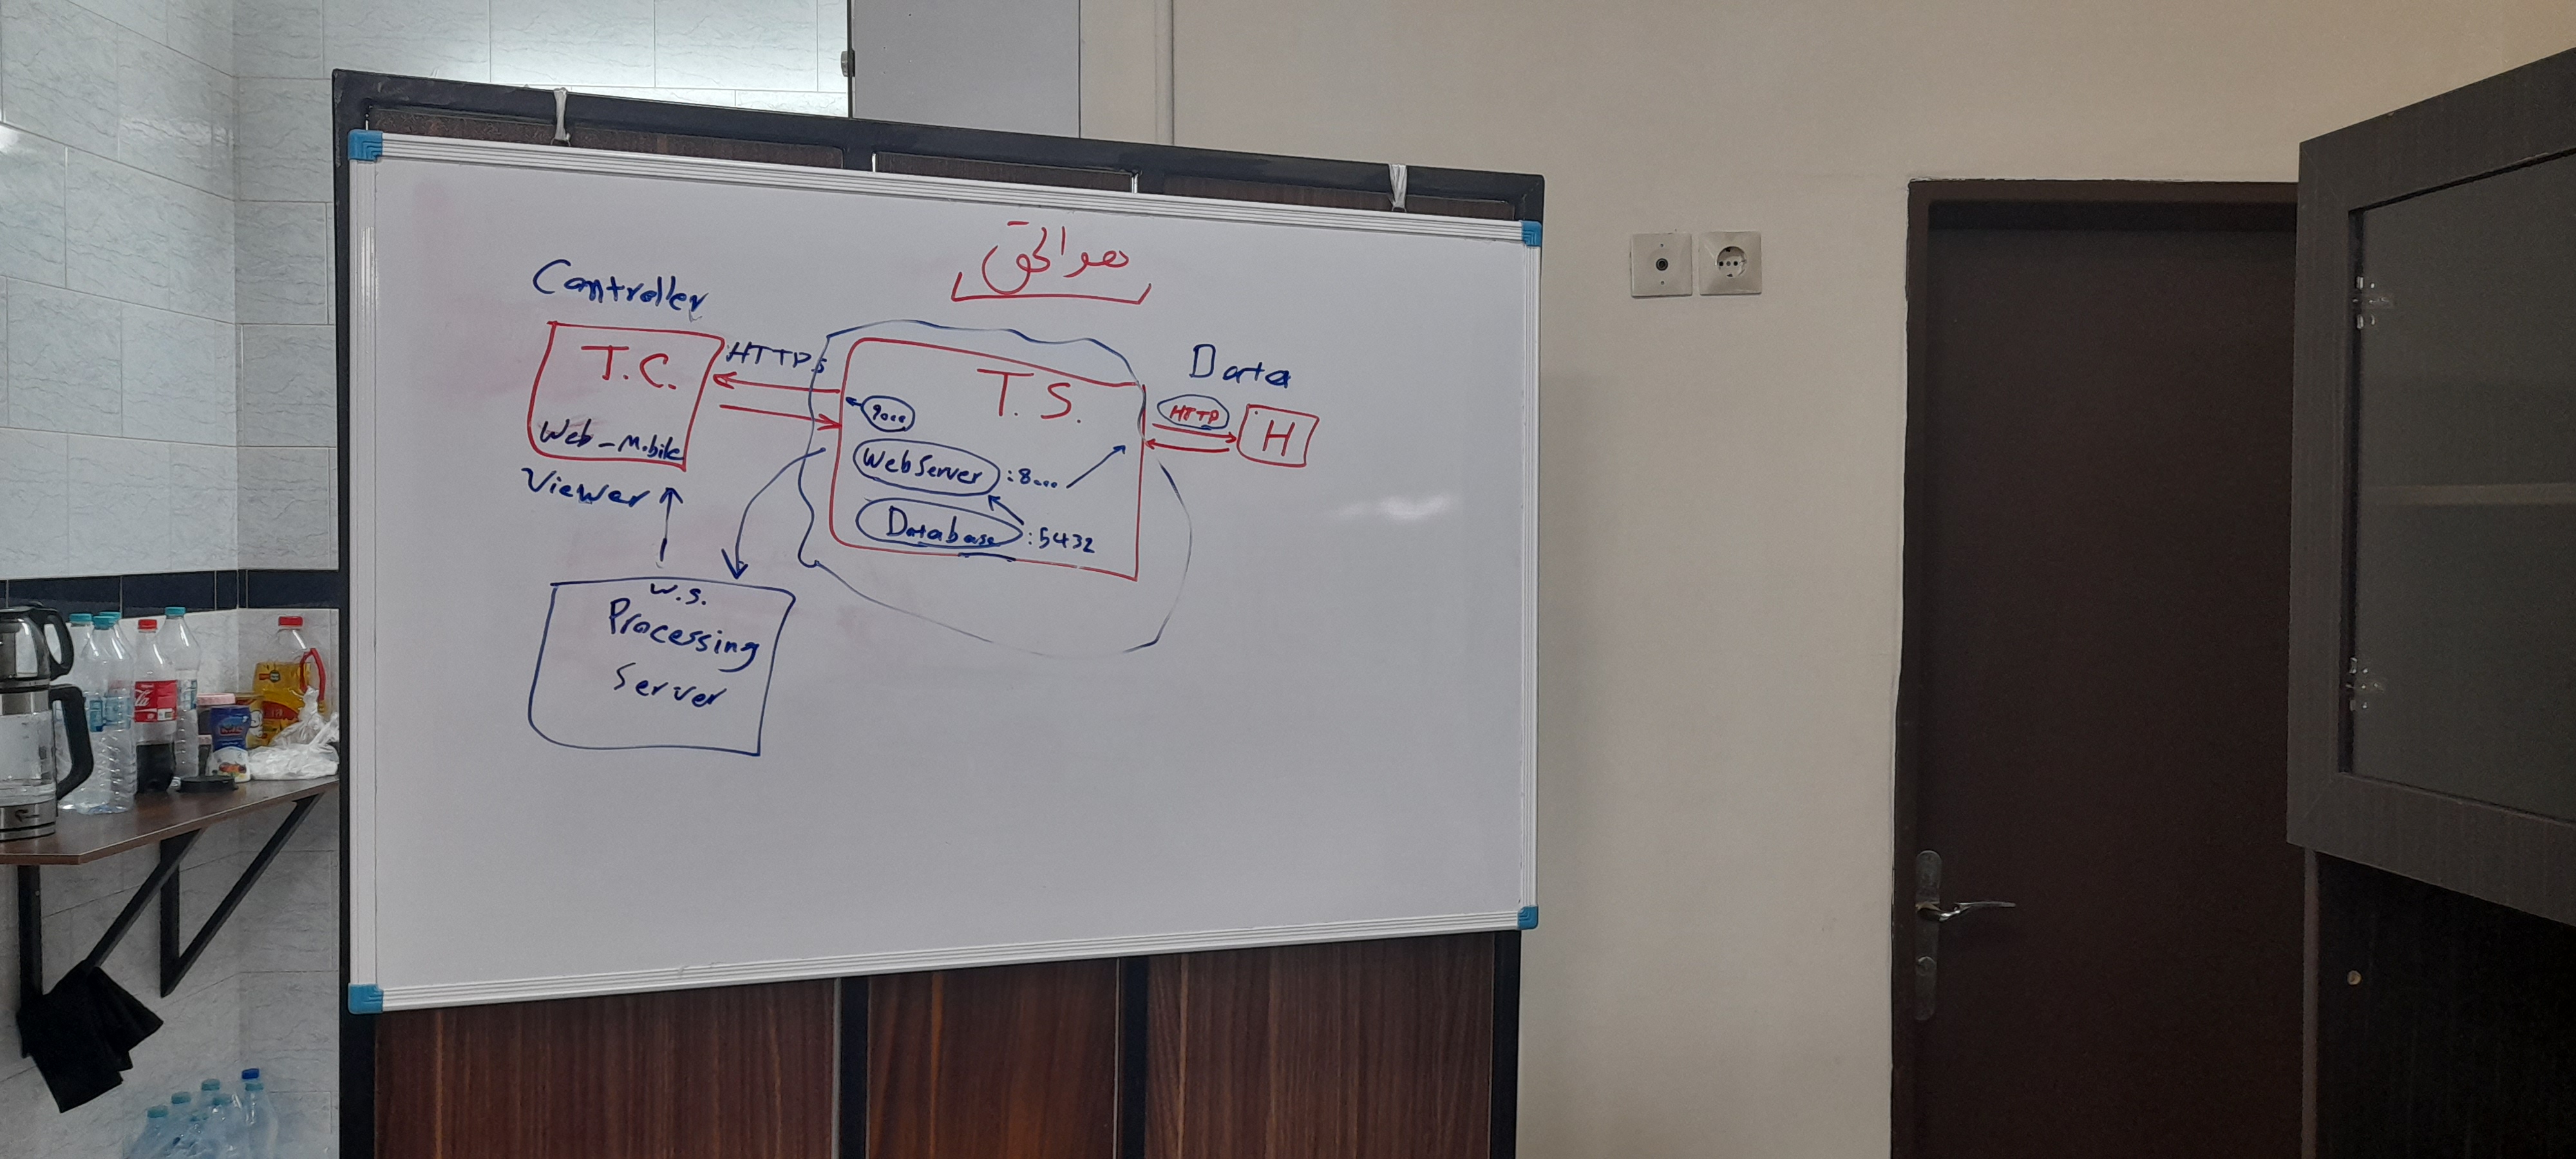 هو الحق
Controller
T.C.
Web-Mobile
Viewer
HTTPs
T.S.
9000
Web Server :8000
Database :5432
Data
HTTP
H
W.S.
Processing
Server